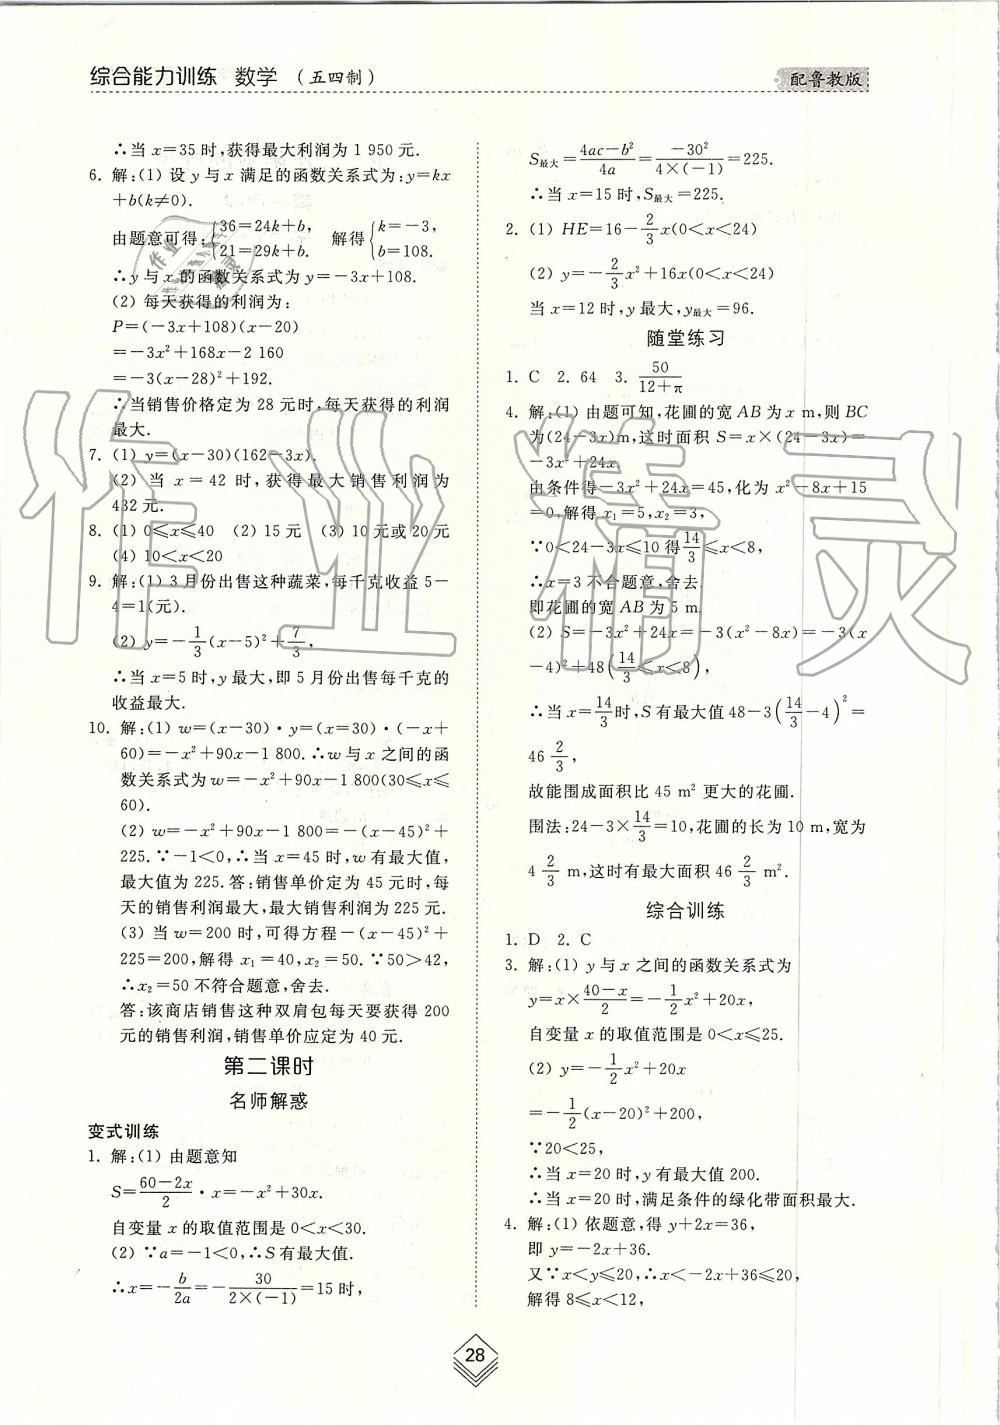 综合能力训练 数学 (五四制)
配鲁教版
∴当 x=35 时,获得最大利润为 1 950 元.
6. 解:(1) 设 y 与 x 满足的函数关系式为:y=kx
+b(k≠0).
由题意可得:{36=24k+b, 21=29k+b. 解得{k=-3, b=108.
∴y 与 x 的函数关系式为 y=-3x+108.
(2) 每天获得的利润为:
P=(-3x+108)(x-20)
=-3x²+168x-2 160
=-3(x-28)²+192.
∴当销售价格定为 28 元时,每天获得的利润
最大.
7. (1) y=(x-30)(162-3x).
(2) 当 x=42 时,获得最大销售利润为
432 元.
8. (1) 0≤x≤40 (2) 15 元 (3) 10 元或 20 元
(4) 10<x<20
9. 解:(1) 3 月份出售这种蔬菜,每千克收益 5-
4=1(元).
(2) y=-1/3(x-5)²+7/3,
∴当 x=5 时,y 最大,即 5 月份出售每千克的
收益最大.
10. 解:(1) w=(x-30)·y=(x=30)·(-x+
60)=-x²+90x-1 800.∴w 与 x 之间的函
数关系式为 w=-x²+90x-1 800(30≤x≤
60).
(2) w=-x²+90x-1 800=-(x-45)²+
225.∵-1<0,∴当 x=45 时,w 有最大值,
最大值为 225.答:销售单价定为 45 元时,每
天的销售利润最大,最大销售利润为 225 元.
(3) 当 w=200 时,可得方程-(x-45)²+
225=200,解得 x₁=40,x₂=50.∵50>42,
∴x₂=50 不符合题意,舍去.
答:该商店销售这种双肩包每天要获得 200
元的销售利润,销售单价应定为 40 元.
第二课时
名师解惑
变式训练
1. 解:(1) 由题意知
S=(60-2x)/2·x=-x²+30x.
自变量 x 的取值范围是 0<x<30.
(2) ∵a=-1<0,∴S 有最大值.
∴x=-b/2a=-30/(2×(-1))=15 时,
S最大=(4ac-b²)/4a=(-30²)/(4×(-1))=225.
∴当 x=15 时,S最大=225.
2. (1) HE=16-2/3x(0<x<24)
(2) y=-2/3x²+16x(0<x<24)
当 x=12 时,y 最大,y最大=96.
随堂练习
1. C 2. 64 3. 50/(12+π)
4. 解:(1) 由题可知,花圃的宽 AB 为 x m,则 BC
为(24-3x)m,这时面积 S=x×(24-3x)=
-3x²+24x.
由条件得-3x²+24x=45,化为 x²-8x+15
=0,解得 x₁=5,x₂=3,
∵0<24-3x≤10 得14/3≤x<8,
∴x=3 不合题意,舍去.
即花圃的宽 AB 为 5 m.
(2) S=-3x²+24x=-3(x²-8x)=-3(x
-4)²+48(14/3≤x<8),
∴当 x=14/3时,S 有最大值 48-3(14/3-4)²=
46 2/3,
故能围成面积比 45 m² 更大的花圃.
围法:24-3×14/3=10,花圃的长为 10 m,宽为
4 2/3 m,这时有最大面积 46 2/3 m².
综合训练
1. D 2. C
3. 解:(1) y 与 x 之间的函数关系式为
y=x×(40-x)/2=-1/2x²+20x,
自变量 x 的取值范围是 0<x≤25.
(2) y=-1/2x²+20x
=-1/2(x-20)²+200,
∵20<25,
∴当 x=20 时,y 有最大值 200.
∴当 x=20 时,满足条件的绿化带面积最大.
4. 解:(1) 依题意,得 y+2x=36,
即 y=-2x+36.
又∵x<y≤20,∴x<-2x+36≤20,
解得 8≤x<12,
28
作业精灵